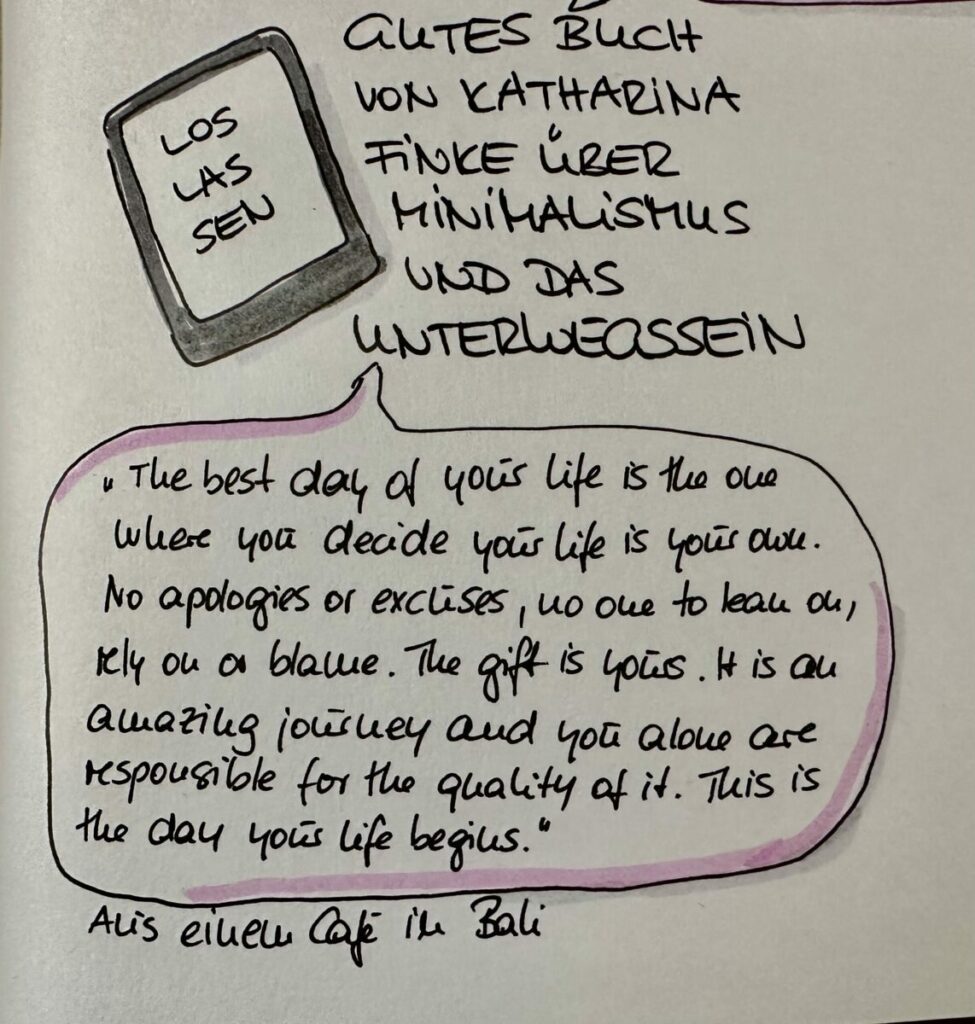 LOS
LAS
SEN
GUTES BUCH
VON KATHARINA
FINKE ÜBER
MINIMALISMUS
UND DAS
UNTERWEGSSEIN
„The best day of your life is the one
where you decide your life is your own.
No apologies or excuses, no one to lean on,
rely on or blame. The gift is yours. It is an
amazing journey and you alone are
responsible for the quality of it. This is
the day your life begins."
Aus einem Café in Bali